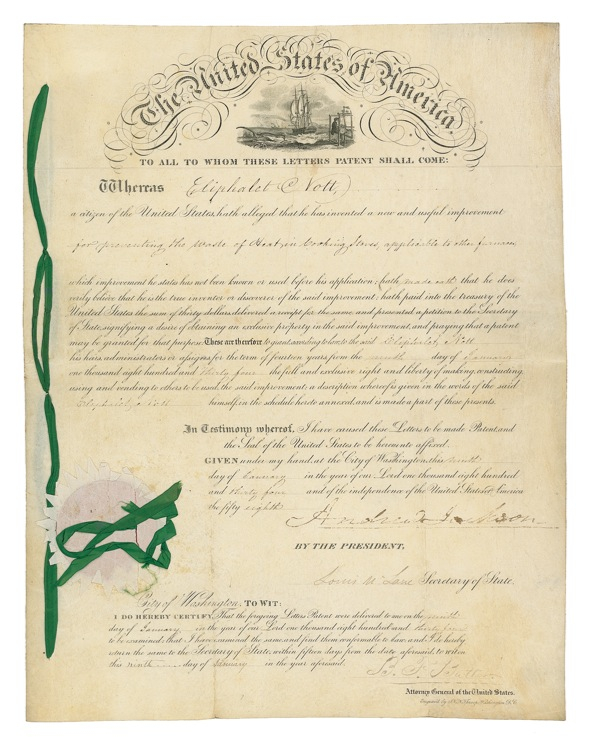 The United States of America
TO ALL TO WHOM THESE LETTERS PATENT SHALL COME:
Whereas Eliphalet Nott
a citizen of the United States, hath alleged that he has invented a new and useful improvement
for preventing the waste of Heat in Cooking Stoves, applicable to other furnaces
which improvement he states has not been known or used before his application; hath made oath that he does
verily believe that he is the true inventor or discoverer of the said improvement; hath paid into the treasury of the
United States the sum of thirty dollars, delivered a receipt for the same and presented a petition to the Secretary
of State, signifying a desire of obtaining an exclusive property in the said improvement, and praying that a patent
may be granted for that purpose. These are therefore to grant according to law, to the said Eliphalet Nott
his heirs, administrators or assigns for the term of fourteen years from the ninth day of January
one thousand eight hundred and thirty four the full and exclusive right and liberty of making, constructing,
using and vending to others to be used, the said improvement; a description whereof is given in the words of the said
Eliphalet Nott himself, in the schedule hereto annexed, and is made a part of these presents.
In Testimony whereof, I have caused these Letters to be made Patent, and
the Seal of the United States to be hereunto affixed.
GIVEN under my hand, at the City of Washington, this ninth
day of January in the year of our Lord one thousand eight hundred
and thirty four and of the independence of the United States of America
the fifty eighth
Andrew Jackson
BY THE PRESIDENT,
Louis McLane Secretary of State.
City of Washington, TO WIT:
I DO HEREBY CERTIFY, That the foregoing Letters Patent were delivered to me on the ninth
day of January in the year of our Lord one thousand eight hundred and thirty four
to be examined; that I have examined the same, and find them conformable to law; and I do hereby
return the same to the Secretary of State, within fifteen days from the date aforesaid, to wit: on
this ninth day of January in the year aforesaid.
B. F. Butler
Attorney General of the United States.
Washington